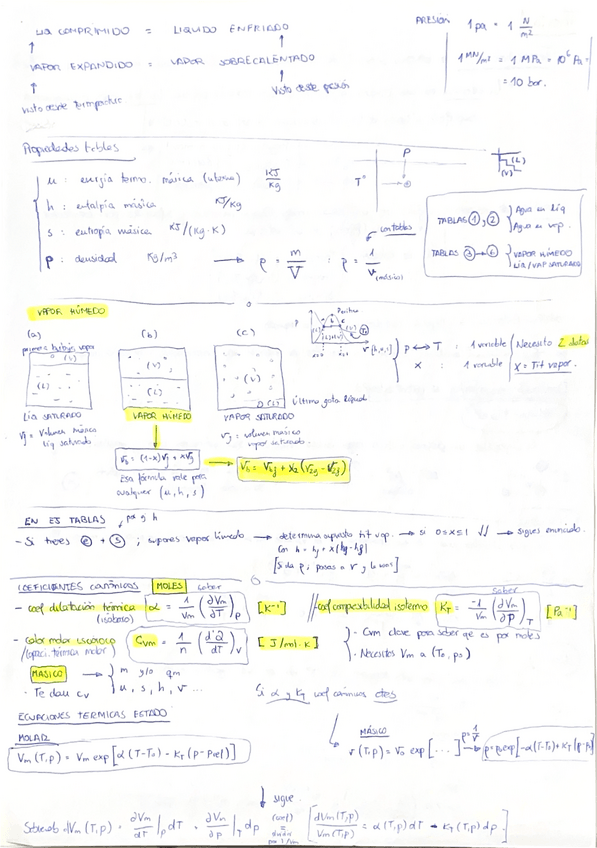 LIQ COMPRIMIDO = LIQUIDO ENFRIADO
VAPOR EXPANDIDO = VAPOR SOBRECALENTADO
visto desde temperatura
Visto desde presión
PRESIÓN 1 pa = 1 N/m²
1 MN/m² = 1 MPa = 10⁶ Pa =
= 10 bar.
Propiedades tablas
u : energía termo. másica (interna) KJ/Kg
h : entalpía másica KJ/Kg
s : entropía másica KJ/(Kg·K)
ρ : densidad Kg/m³ → ρ = m/V : ρ = 1/v (másico)
con tablas
P
T°
(L)
(V)
TABLAS ① y ② { Agua en Liq
Agua en vap.
TABLAS ③ → ⑥ { VAPOR HÚMEDO
LIQ/VAP SATURADO
VAPOR HÚMEDO
(a) (b) (c)
primera burbuja vapor
(V)
(L)
LIQ SATURADO
Vf = Volumen másico
liq saturado
VAPOR HÚMEDO
VAPOR SATURADO
(L) última gota líquida
Vg = volumen másico
vapor saturado.
P ↔ T : 1 variable
x : 1 variable
Necesito 2 datos
x = Tit vapor.
V₂ = (1-x)Vf + xVg
Esa fórmula vale para
cualquier (u, h, s)
EN EJ TABLAS
por ej h
- Si tienes ② + ⑤ ; supones vapor húmedo → determina supuesto tit vap. → si 0≤x≤1 √√ → sigues enunciado.
Con h = hf + x(hg - hf)
COEFICIENTES CANÓNICOS MOLES saber
- coef dilatación térmica (isobaro) α = 1/Vm (∂Vm/∂T)p [K⁻¹]
// coef compresibilidad isotermo KT = -1/Vm (∂Vm/∂P)T [Pa⁻¹]
saber
- Calor molar isocórico
/capaci. térmica molar Cvm = 1/n (d'Q/dT)v [J/mol·K]
- Cvm clave para saber qe es por moles
- Necesitas Vm a (T₀, p₀)
MASICO → m y/o qm
- Te dan cv u, s, h, v ...
Si α y KT coef canónicos ctes
ECUACIONES TERMICAS ESTADO
MOLAR
Vm(T,p) = Vm exp[α(T-T₀) - KT(p-pref)]
MÁSICO
v(T,p) = v₀ exp[...] → ρ = 1/v → ρ = ρ₀ exp[-α(T-T₀) + KT(p-p₀)]
↓ sigue
dVm(T,p) = ∂Vm/∂T |p dT + ∂Vm/∂p |T dp
dVm(T,p)/Vm(T,p) = α(T,p) dT - KT(T,p) dp